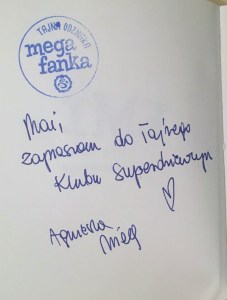 TAJNA ODZNAKA
mega
fanka
Mai,
zapraszam do Tajnego
Klubu Superdziewczyn
Agnieszka
Mielech